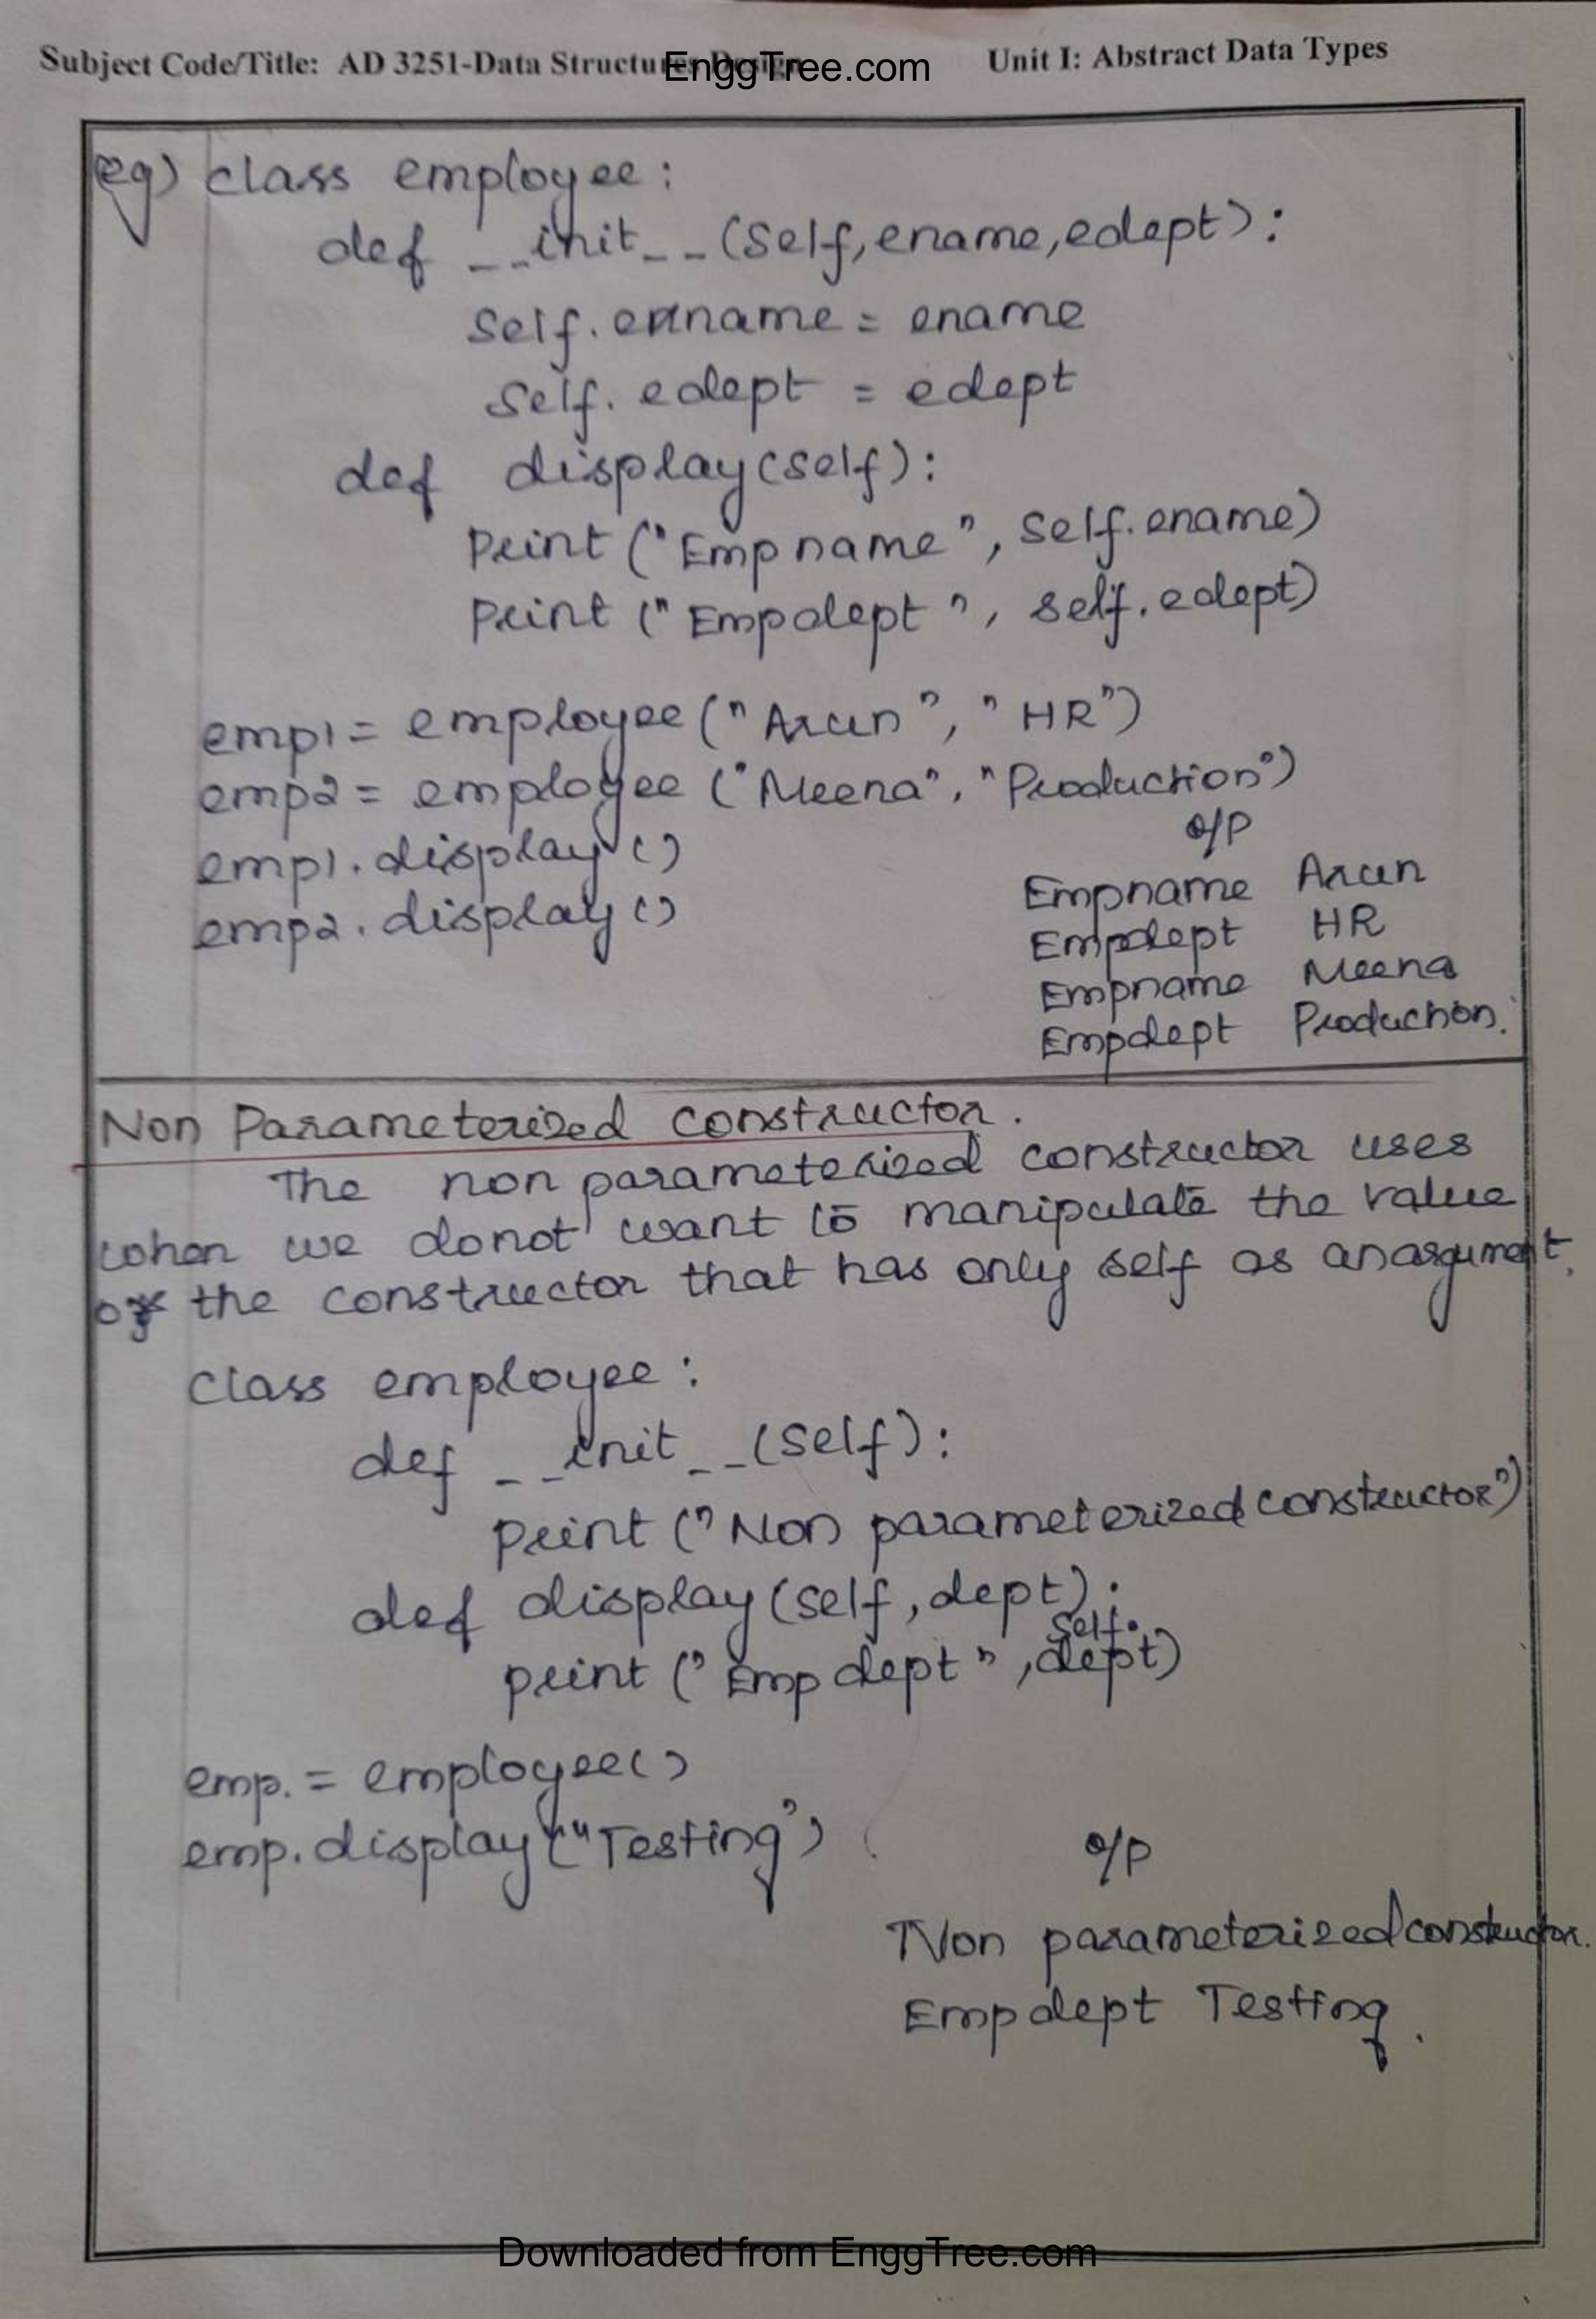 Subject Code/Title: AD 3251-Data Structures Design EnggTree.com Unit I: Abstract Data Types
eg) class employee:
def __init__(self,ename,edept):
self.ename = ename
self.edept = edept
def display(self):
print("Empname", self.ename)
print("Empdept", self.edept)
emp1 = employee("Arun", "HR")
emp2 = employee("Meena", "Production")
emp1.display()
emp2.display()
o/p
Empname Arun
Empdept HR
Empname Meena
Empdept Production.
Non Parameterized constructor.
The non parameterized constructor uses
when we donot want to manipulate the value
of the constructor that has only self as an argument.
class employee:
def __init__(self):
print("Non parameterized constructor")
def display(self,dept):
self.
print("Emp dept",dept)
emp. = employee()
emp.display("Testing")
o/p
Non parameterized constructor.
Emp dept Testing.
Downloaded from EnggTree.com